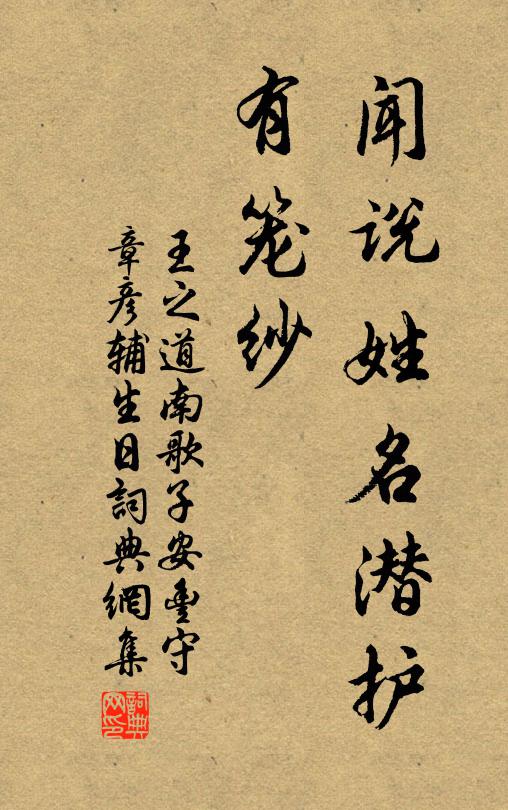 闻说姓名潜护
有笼纱
王之道南歌子安豊守
章彦辅生日詞典網集
詞典
网印